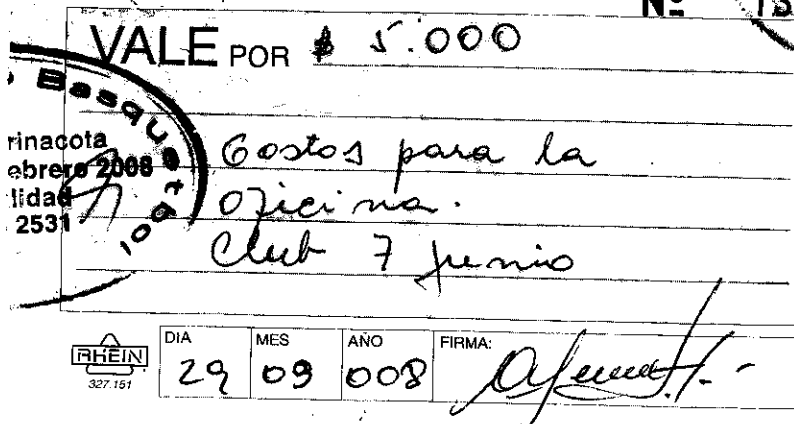 Nº 13
VALE POR $ 5.000
o Basquetbol
rinacota
ebrero 2008
lidad
2531
Gastos para la
oficina.
Club 7 junio
RHEIN
327.151
DIA MES AÑO FIRMA:
29 09 008